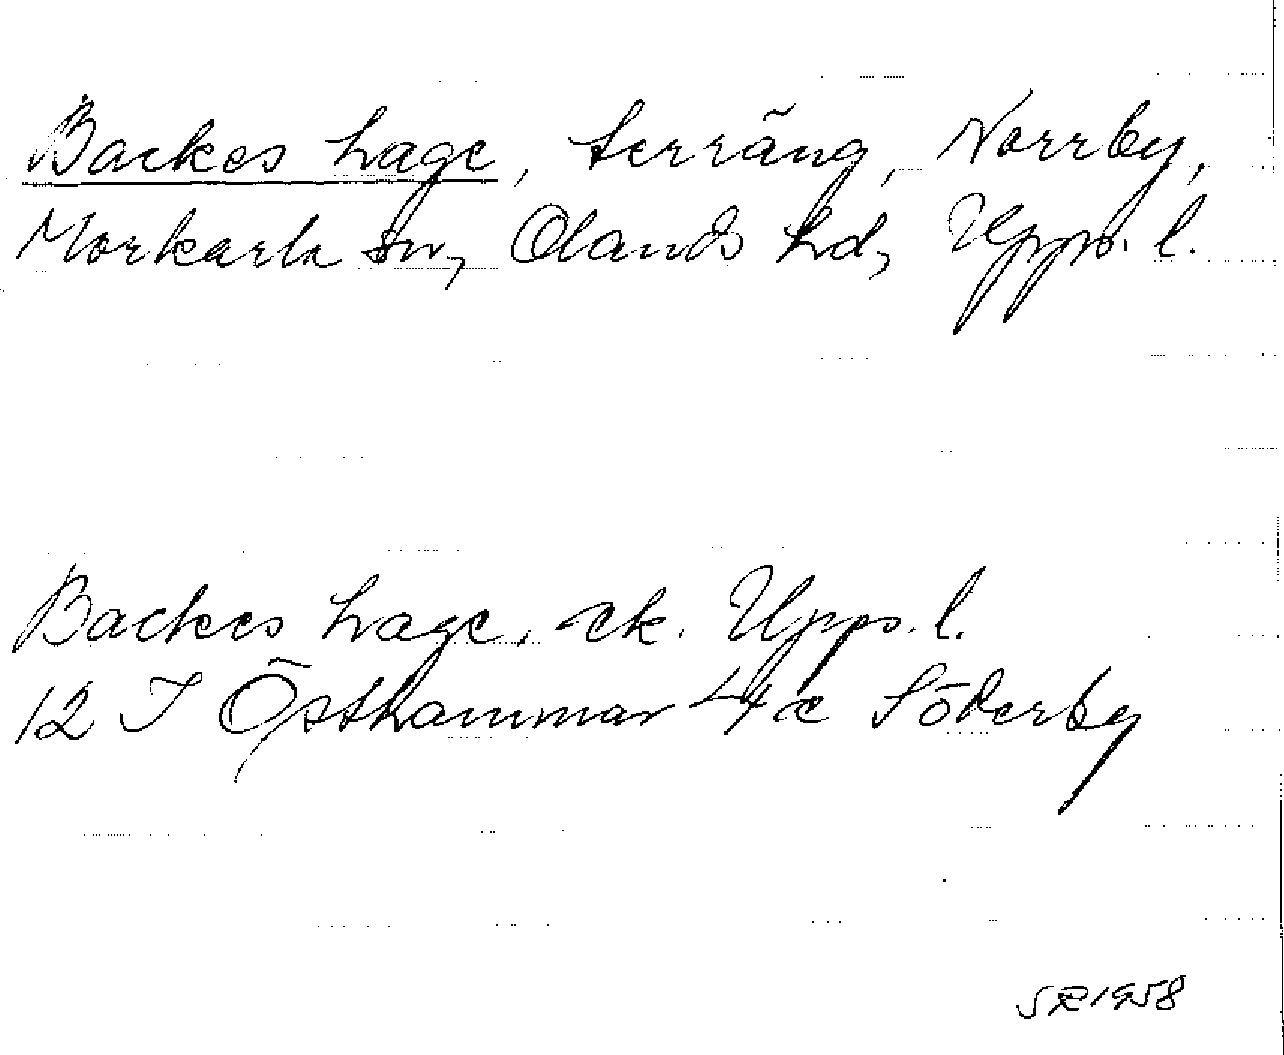 Backes hage, terräng, Norrby,
Morkarla sn, Olands hd, Upps. l.
Backes hage, ek. Upps. l.
12 I Östhammar 4 c Söderby
SR 1958